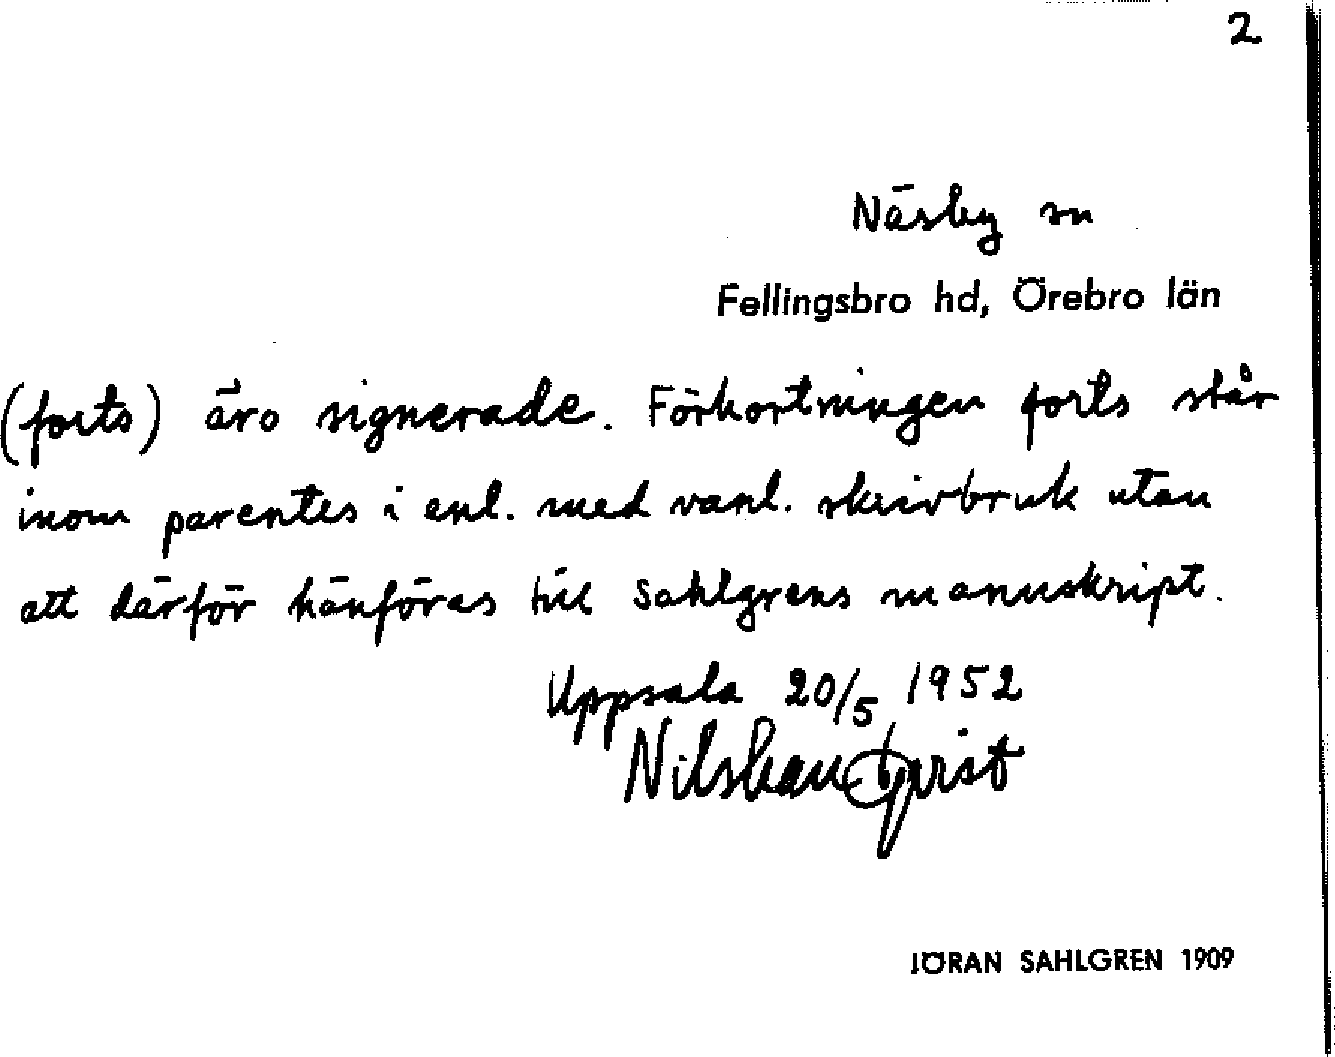 2
Näsby sn
Fellingsbro hd, Örebro län
(forts) äro signerade. Förkortningen forts står
inom parentes i enl. med vanl. skrivbruk utan
att därför hänföras till Sahlgrens manuskript.
Uppsala 20/5 1952
JÖRAN SAHLGREN 1909